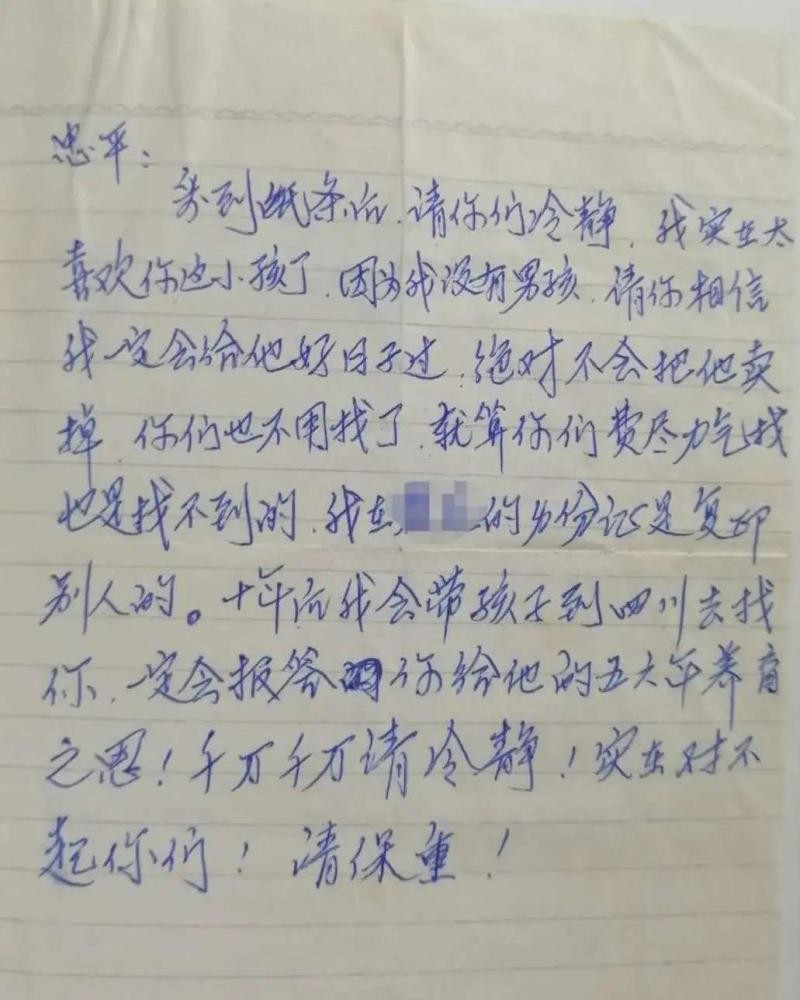 忠平：
接到纸条后，请你们冷静，我实在太
喜欢你这小孩了，因为我没有男孩，请你相信
我一定会给他好日子过，绝对不会把他卖
掉，你们也不用找了，就算你们费尽力气找
也是找不到的，我在的身份证是复印
别人的。十年后我会带孩子到四川去找
你，一定会报答你给他的五六年养育
之恩！千万千万请冷静！实在对不
起你们！请保重！